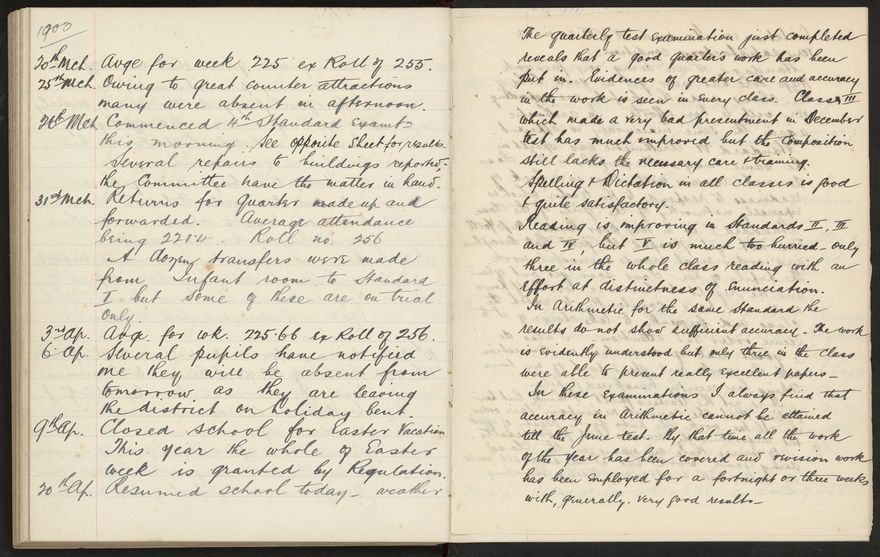 1903
20th Mch. Avge for week 225 ex Roll of 255.
25th Mch. Owing to great counter attractions
many were absent in afternoon.
26th Mch Commenced 4th Standard Examtn
this morning. See opposite sheet for results.
Several repairs to buildings reported,
the Committee have the matter in hand.
31st Mch. Returns for quarter made up and
forwarded. Average attendance
being Roll no. 256
A dozen transfers were made
from Infant room to Standard
I but some of these are on trial
only.
3rd Ap. Avge. for wk. 225.66 ex Roll of 256.
6 Ap. Several pupils have notified
me they will be absent from
tomorrow as they are leaving
the district on holiday bent.
9th Ap. Closed school for Easter Vacation
This year the whole of Easter
week is granted by Regulation.
20th Ap. Resumed school today - weather
The quarterly test examination just completed
reveals that a good quarter's work has been
put in. Evidences of greater care and accuracy
in the work is seen in every class. Class III
which made a very bad presentment in December
test has much improved but the composition
still lacks the necessary care & training.
Spelling & Dictation in all classes is good
& quite satisfactory.
Reading is improving in Standards II, III
and IV, but V is much too hurried. only
three in the whole class reading with an
effort at distinctness of enunciation.
In Arithmetic for the same Standard the
results do not show sufficient accuracy - The work
is evidently understood but only three in the class
were able to present really excellent papers -
In these examinations I always find that
accuracy in Arithmetic cannot be attained
till the June test. By that time all the work
of the year has been covered and revision work
has been employed for a fortnight or three weeks
with, generally, very good results -